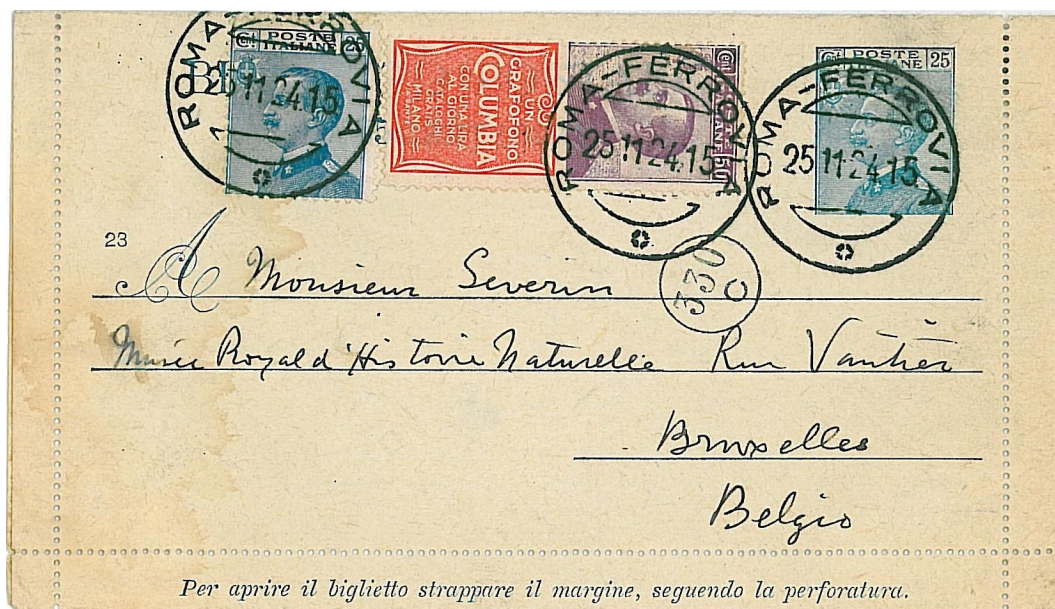 Cmi POSTE 25
ITALIANE
ROMA-FERROVIA
25·11·24·15
1
UN
GRAFOFONO
COLUMBIA
CON UNA LIRA
AL GIORNO
CATALOGHI
GRATIS
MILANO
Cent
50
ROMA-FERROVIA
25·11·24·15
POSTE 25
ROMA-FERROVIA
25·11·24·15
23
330
C
A Monsieur Severin
Musée Royal d'Histoire Naturelle Rue Vautier
Bruxelles
Belgio
Per aprire il biglietto strappare il margine, seguendo la perforatura.